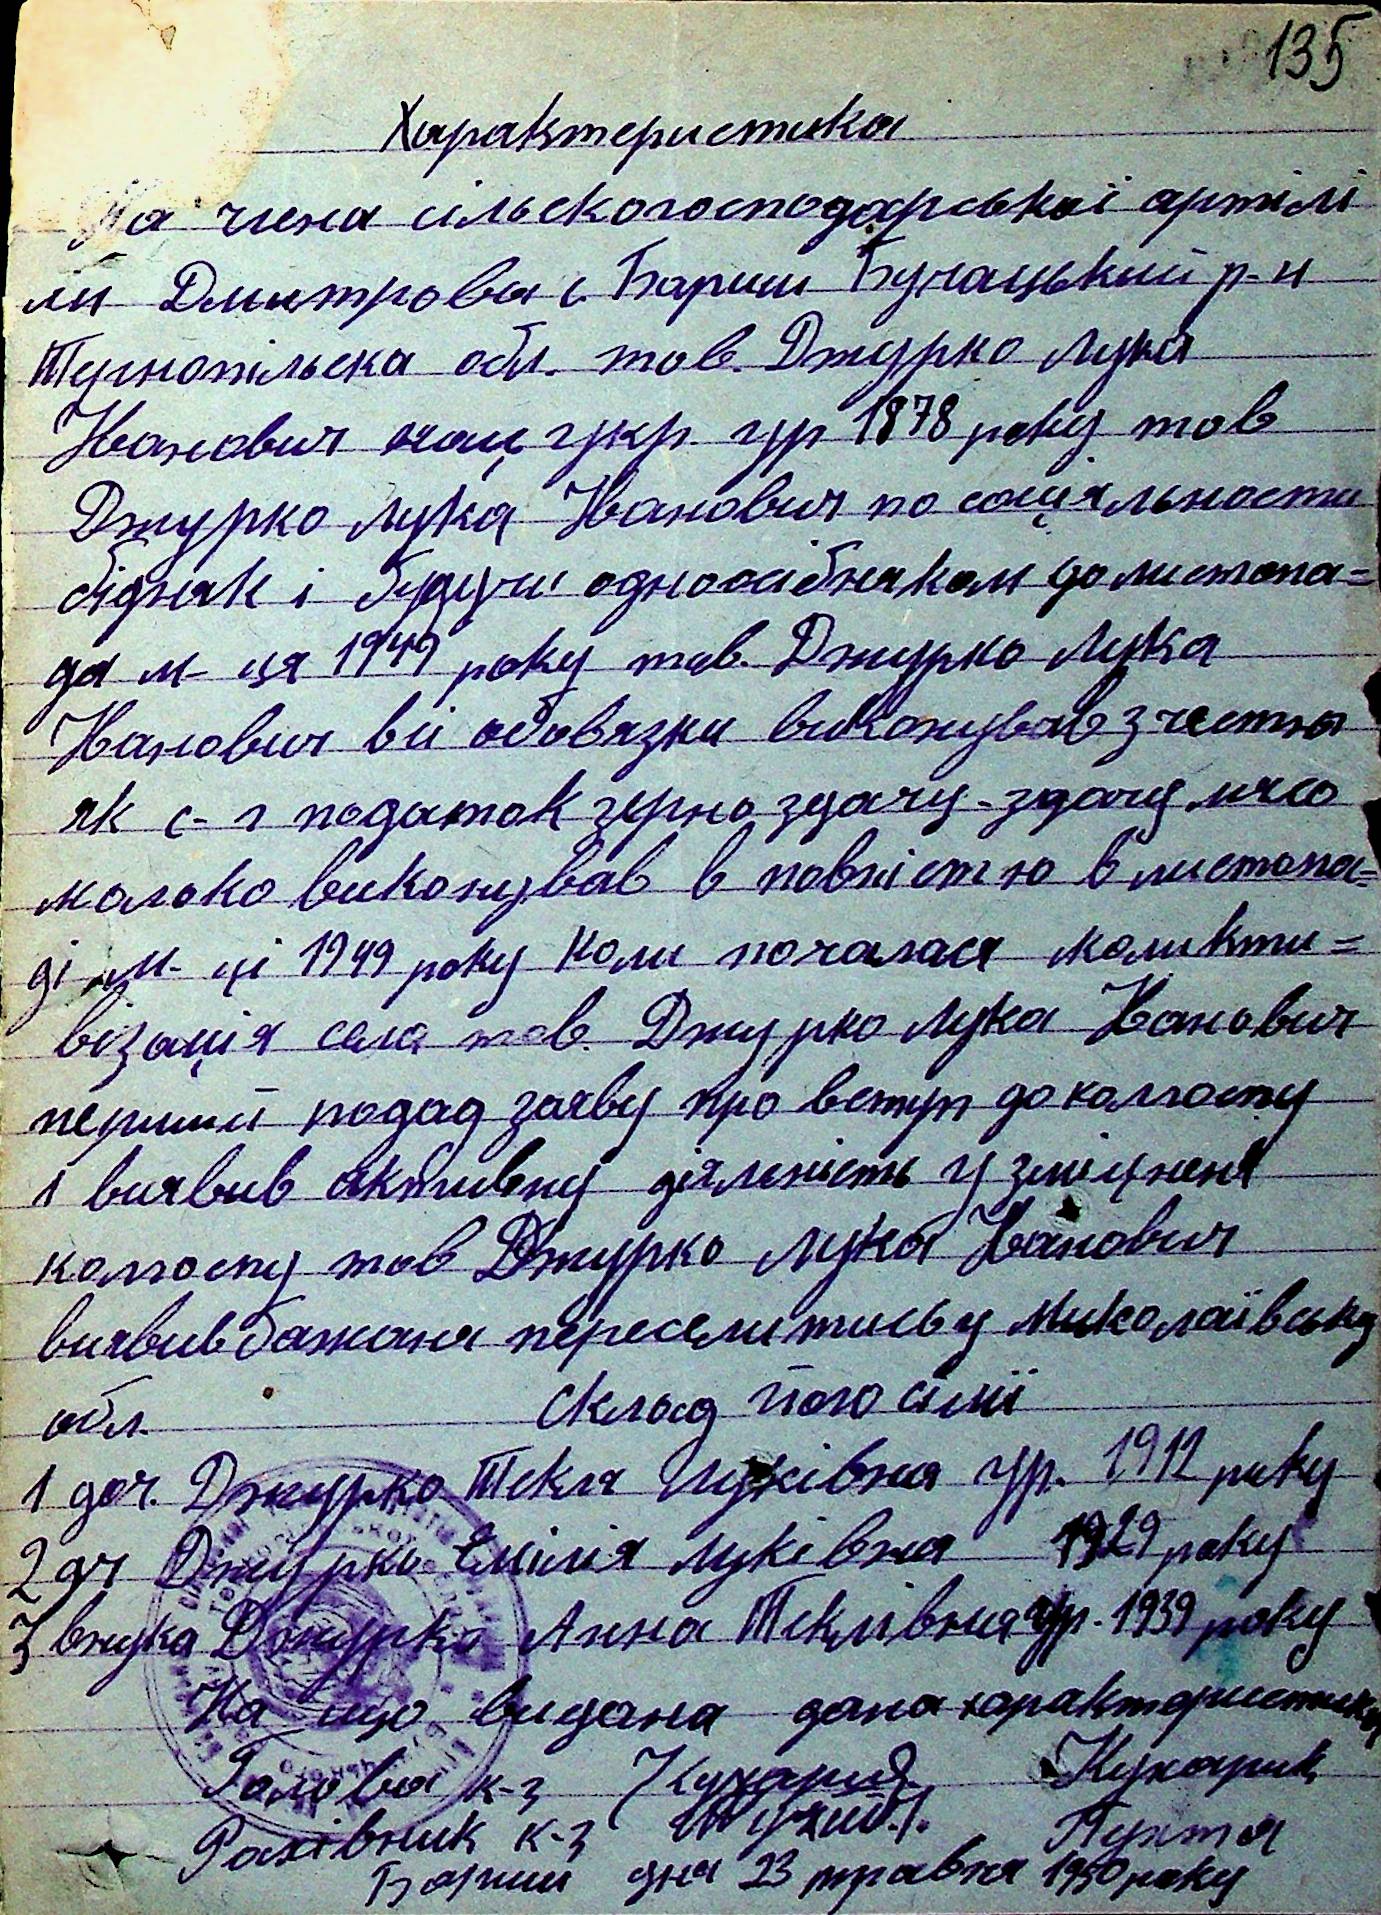 135
Характеристика
На члена сільскогосподарської артілі
ім Дмитрова с. Бариш Бучацький р-н
Тернопільска обл. тов. Джурко Лука
Іванович нац укр. ур 1878 року тов
Джурко Лука Іванович по соціяльности
бідняк і будучи одноосібником до листопа=
да м-ця 1949 року тов. Джурко Лука
Іванович всі обовязки виконував з честю
як с-г податок зерно здачу-здачу мясо
молоко виконував в повністю в листопа=
ді м-ці 1949 року коли почалася коликти=
візація села тов. Джурко Лука Іванович
перший подад заяву про вступ до колгоспу
і виявив активну діяльність у зміцненя
колгоспу тов Джурко Лука Іванович
виявив бажаня переселитись у Миколаївську
обл. Склад його сімї
1 доч. Джурко Текля Луківна ур. 1912 року
2 дч Джурко Емілія Луківна 1929 року
3 внука Джурко Анна Теклівна ур. 1939 року
На що видана дана характеристика
Голова к-з Кухарик
Рахівник к-з Пухта
Бариш дня 23 травня 1950 року